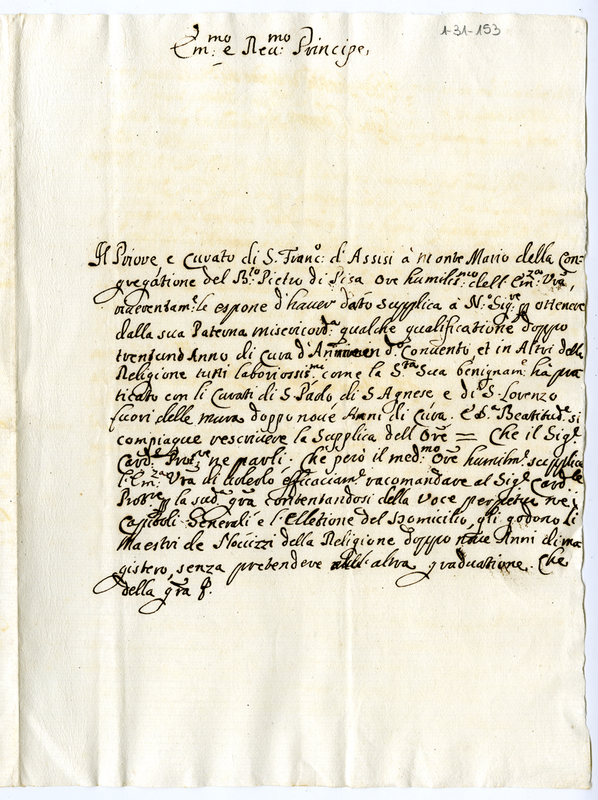 1-31-153
Em:mo e Reu:mo Principe,
Il Priore, e Curato di S. Franc:o d'Assisi à Monte Mario della Con-
gregatione del B:to Pietro di Pisa Ore humilis:mo dell'Em:za Vra,
riuerentam:te espone d'hauer dato supplica à N:ro Sig:re p ottenere
dalla sua Paterna misericord:a qualche qualificatione doppo
trent'un'Anno di cura d'Anime in d:o Conuento, et in Altri della
Religione tutti laboriossis:mi come la S:tà Sua benignam:te hà pra
ticato con li Curati di S. Paolo di S. Agnese e di S. Lorenzo
fuori delle mura doppo noue Anni di Cura. E S:a Beatitud:e si
compiaque rescriuere la Supplica dell'Ore = Che il Sig:r
Card:le Prot:re ne parli. Che però il med:mo Ore humilm:te supplica
l'Em:za Vra di uolerlo efficacem:te racomandare al Sig:r Card:le
Prot:re p la sud:a gra contentandosi della Voce perpetua ne i
Capitoli Generali e l'Elletione del Domicilio, che godono li
Maestri de Nouizzi della Religione doppo noue Anni di ma
gistero, senza pretendere altra graduatione. Che
della gra &.